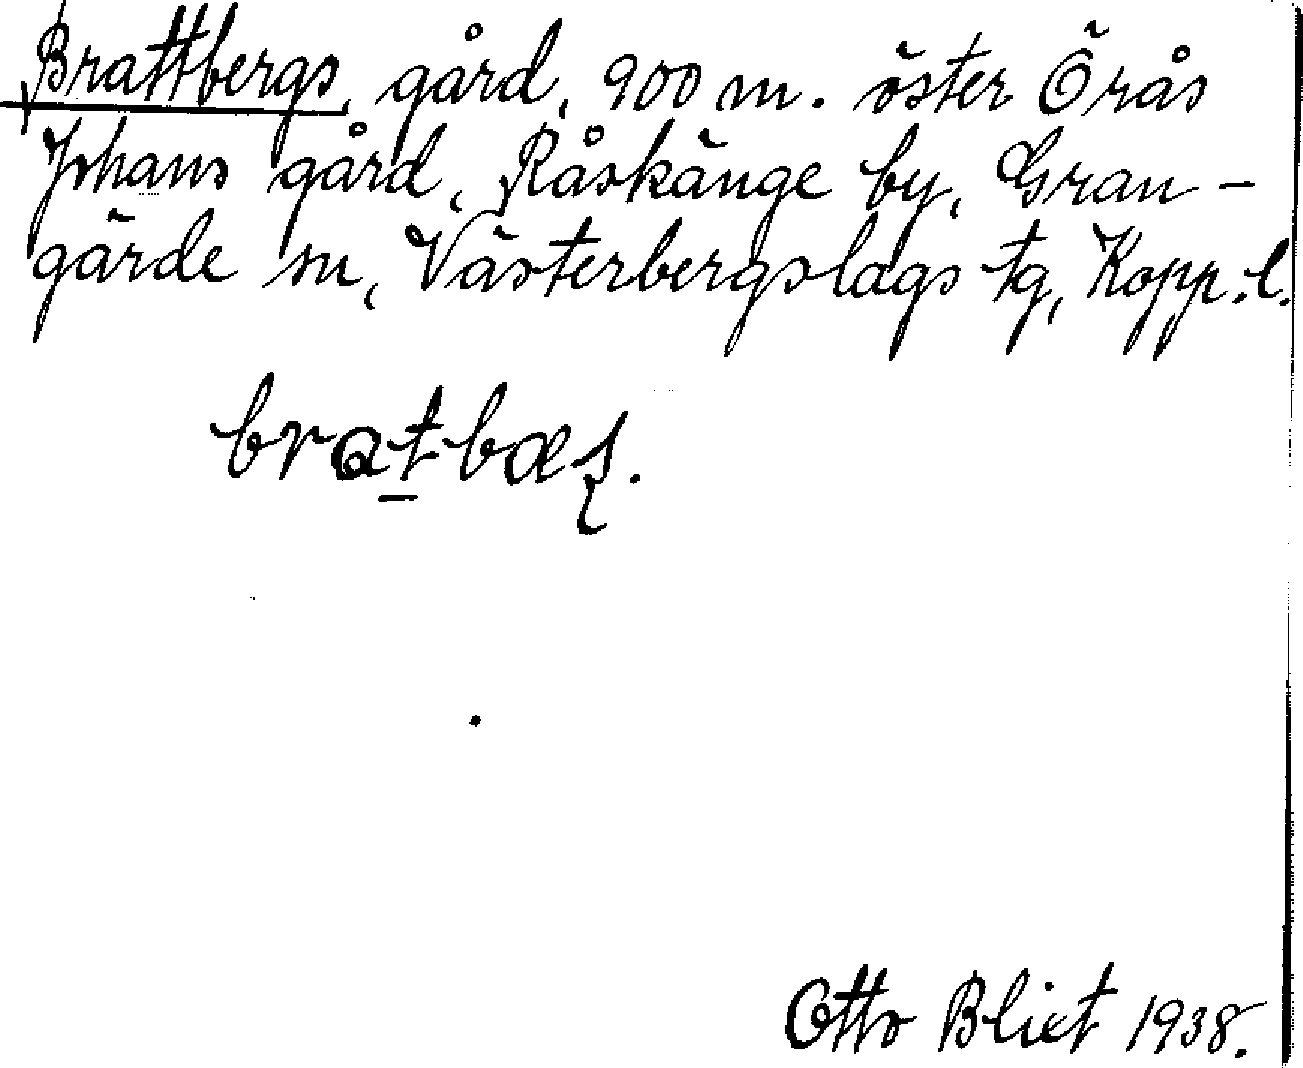 Brattbergs, gård, 900 m. öster Örås
Johans gård, Råskänge by, Gran-
gärde sn, Västerbergslags tg, Kopp.l.
bratbæʂ.
Otto Blixt 1938.